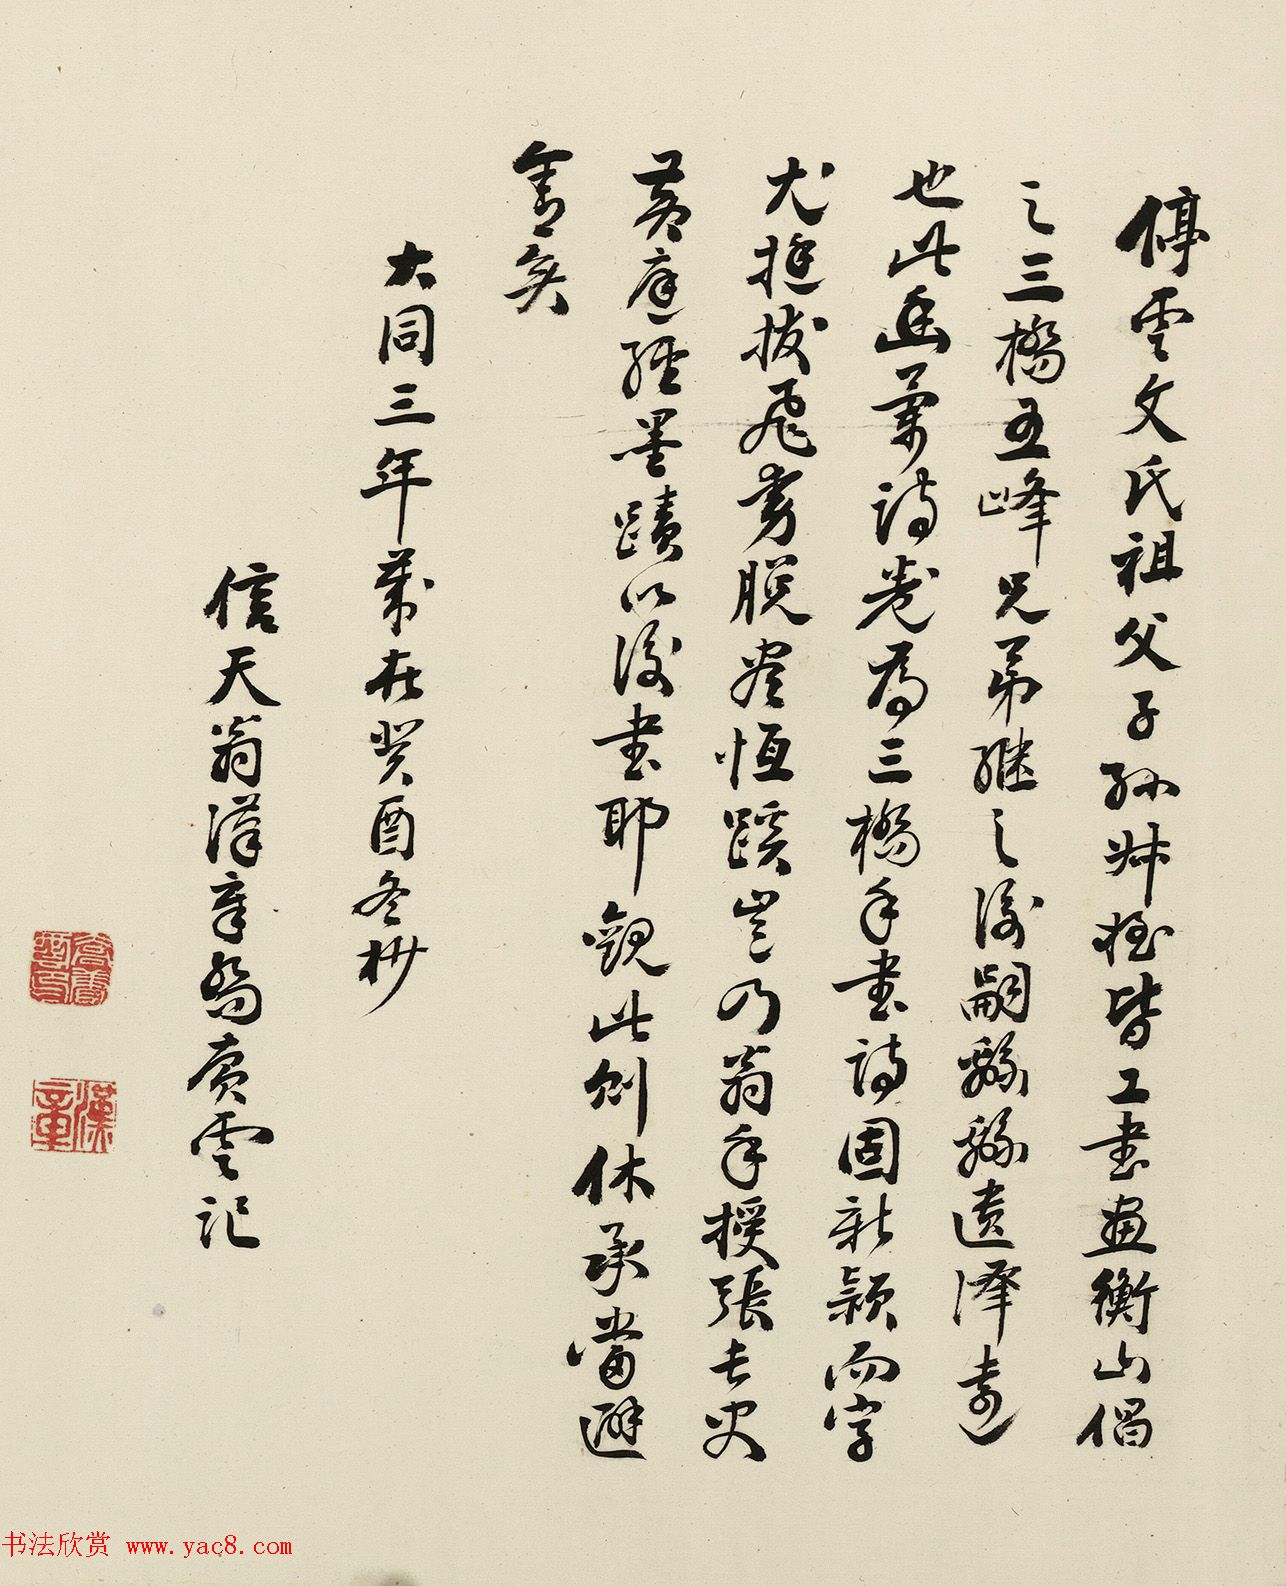 停雲文氏祖父子孫叔姪皆工書畫衡山倡
之三橋五峰兄弟繼之後嗣緜緜遺澤遠
也此詩卷為三橋手書詩固新穎而字
尤挺拔飛脫盡恒蹊豈乃翁手授張長史
黃庭經墨蹟以後書耶觀此則休承當避
舍矣
大同三年歲在癸酉冬杪
信天翁漢章喬雲記
漢章
书法欣赏 www.yac8.com